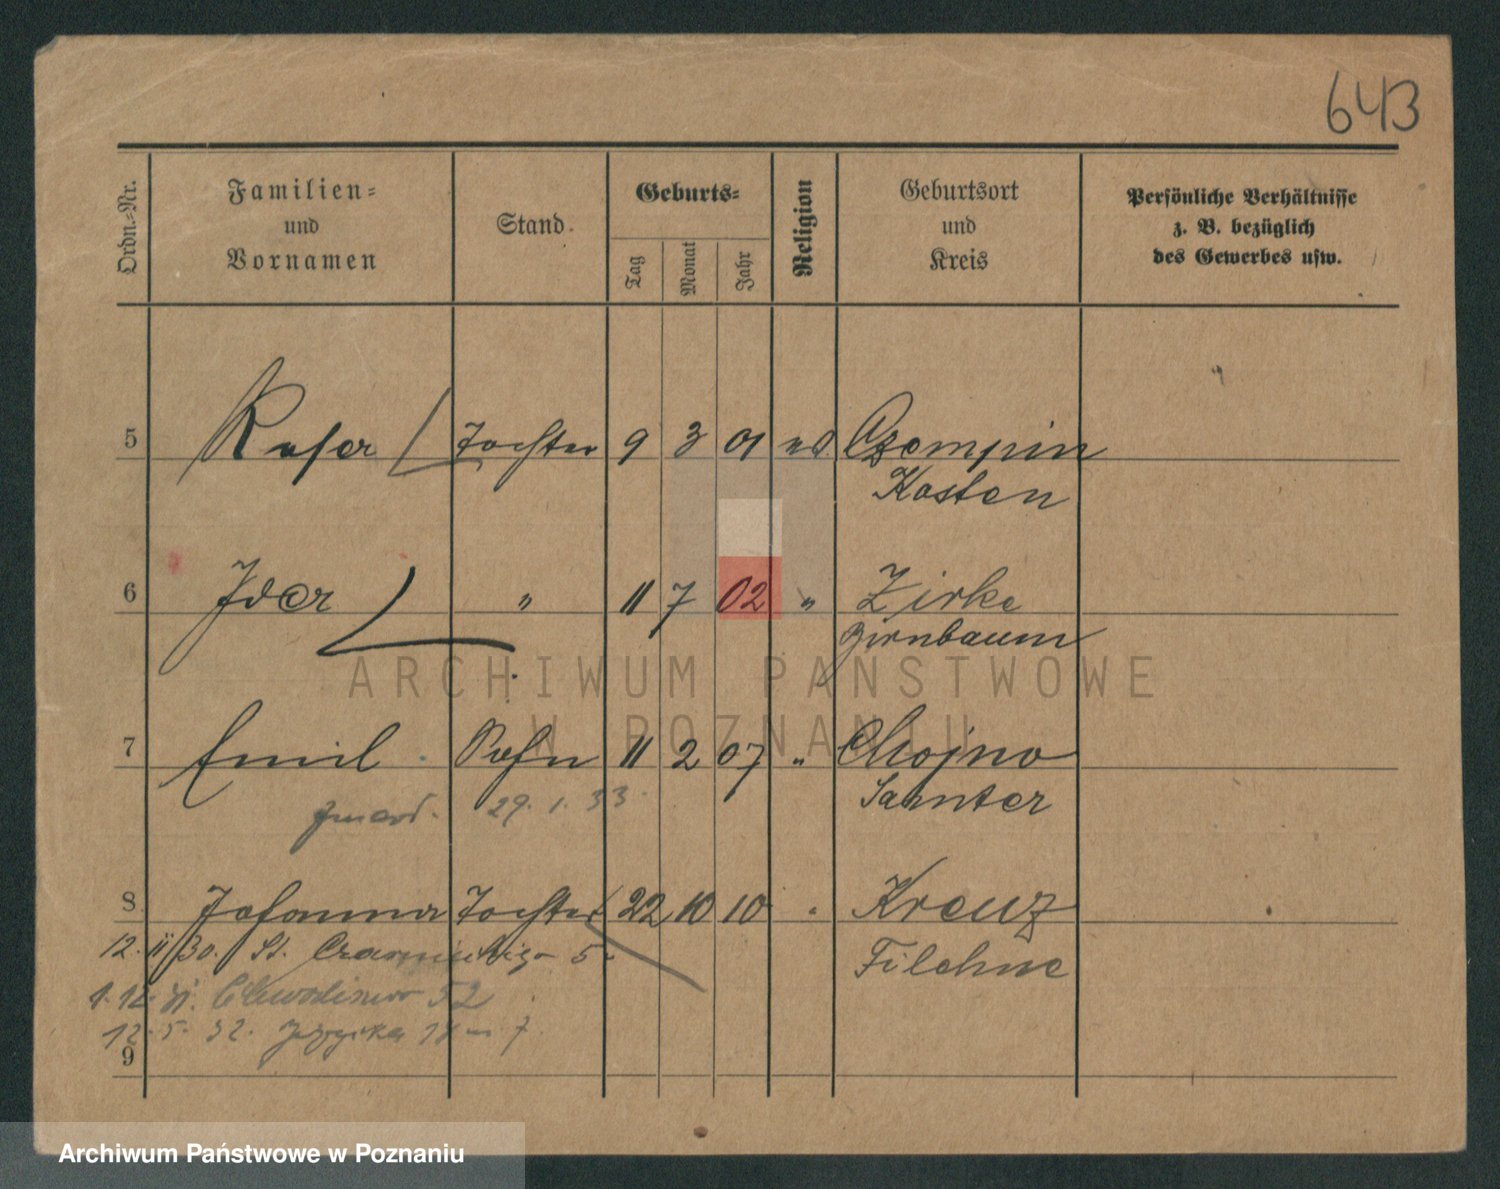 643
Ordn.-Nr.
Familien-
und
Vornamen
Stand
Geburts-
Tag
Monat
Jahr
Religion
Geburtsort
und
Kreis
Persönliche Verhältnisse
z. B. bezüglich
des Gewerbes usw.
5 Tochter 9 3 01 Czempin
Kosten
6 " 11 7 02 " Zirke
Birnbaum
7 Emil Sohn 11 2 07 " Chojno
zmarł. 29. 1. 33.
Samter
8 Johanna Tochter 22 10 10 " Kreuz
12. 30. St. 5
Filehne
52
12. 5. 32. 7
9
ARCHIWUM PAŃSTWOWE
W POZNANIU
Archiwum Państwowe w Poznaniu